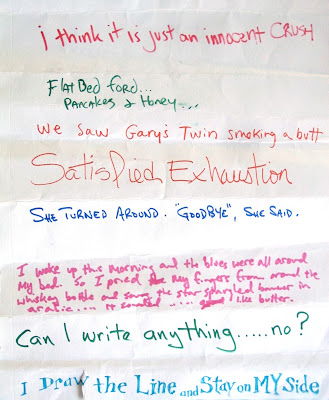 i think it is just an innocent CRUSH
FLatBed FORD...
PANCAKES & HONEY...
We Saw Gary's Twin smoking a butt
Satisfied Exhaustion
SHE TURNED AROUND. "GOODBYE", SHE SAID.
I woke up this morning and the blues were all around
My bed. So I pried my fingers from around the
whiskey bottle and sang the star spangled banner in
arabic.... it sounded ..... like butter.
Can I write anything.....no?
I Draw the Line and Stay on MY Side